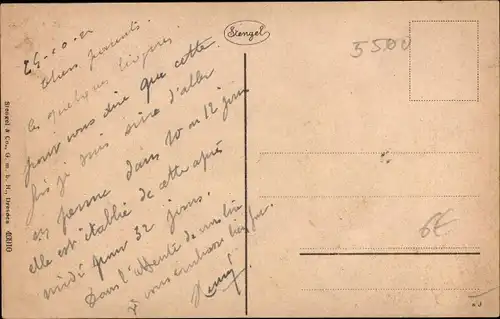 Chers parents.
ces quelques lignes
pour vous dire que cette
fois je suis sûre d'aller
en perme dans 10 ou 12 jours
elle est établie de cette après
midi pour 32 jours.
Dans l'attente de vous lire
je vous embrasse bien fort
Henri
Stengel
Stengel & Co., G. m. b. H., Dresden
5500
6€